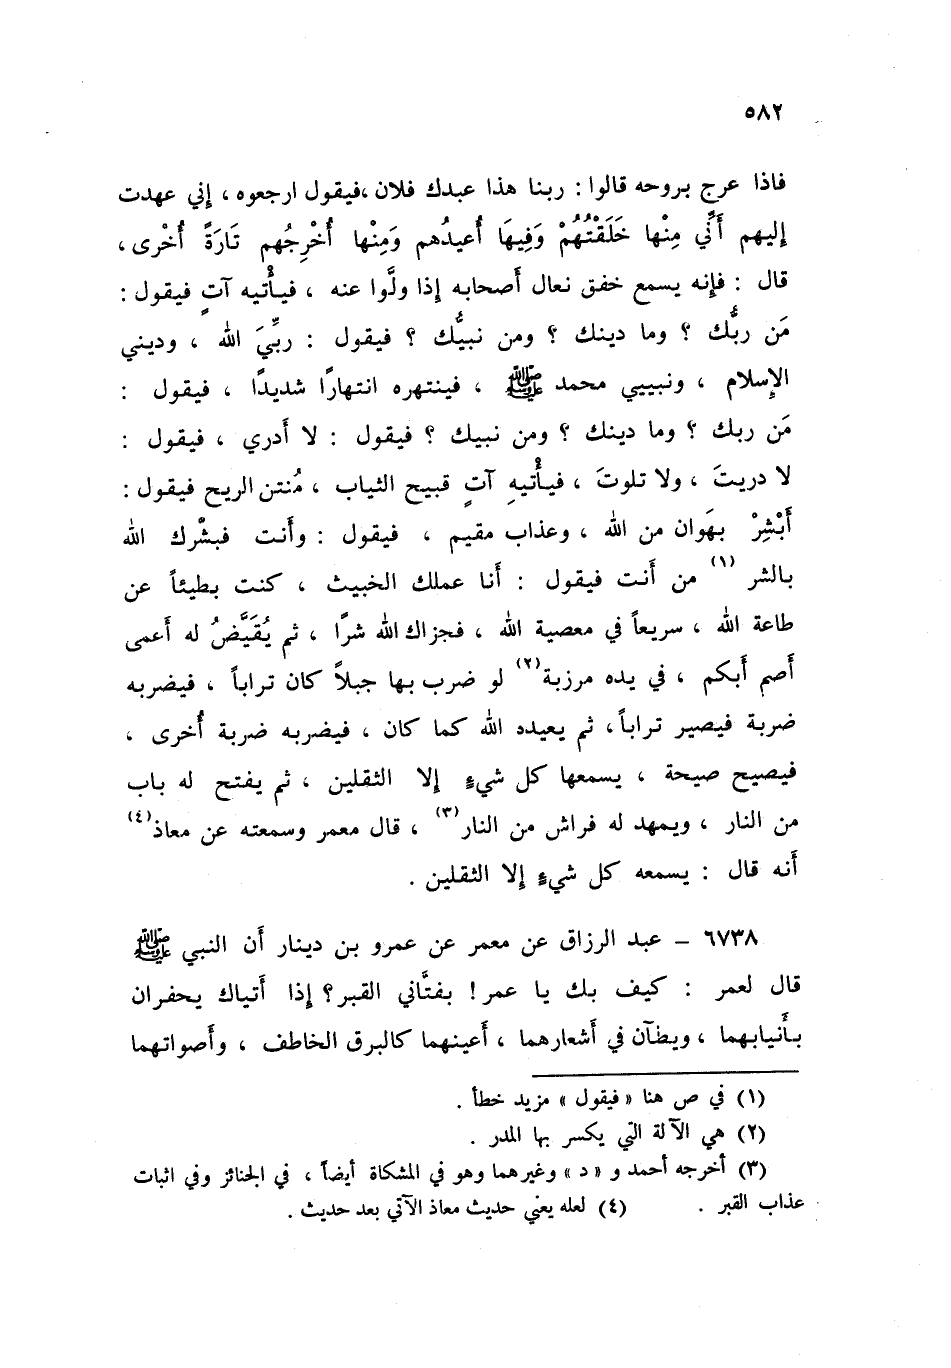 ٥٨٢
فاذا عرج بروحه قالوا : ربنا هذا عبدك فلان ،فيقول ارجعوه ، إني عهدت
إليهم أَنِّي مِنْها خَلَقْتُهُمْ وَفِيهَا أُعيدُهم وَمِنْها أُخْرِجُهم تَارَةً أُخْرى ،
قال : فإنه يسمع خفق نعال أَصحابه إذا ولَّوا عنه ، فيأْتيه آتٍ فيقول :
مَن ربُّك ؟ وما دينك ؟ ومن نبيُّك ؟ فيقول : ربِّيَ الله ، وديني
الإسلام ، ونبيي محمد ﷺ ، فينتهره انتهارًا شديدًا ، فيقول :
مَن ربك ؟ وما دينك ؟ ومن نبيك ؟ فيقول : لا أَدري ، فيقول :
لا دريتَ ، ولا تلوتَ ، فيأْتيهِ آتٍ قبيح الثياب ، مُنتن الريح فيقول :
أَبْشِرْ بهَوان من الله ، وعذاب مقيم ، فيقول : وأَنت فبشَّرك الله
بالشر (١) من أَنت فيقول : أَنا عملك الخبيث ، كنت بطيئاً عن
طاعة الله ، سريعاً في معصية الله ، فجزاك الله شرًّا ، ثم يُقَيَّضُ له أَعمى
أَصم أَبكم ، في يده مرزبة(٢) لو ضرب بها جبلاً كان تراباً ، فيضربه
ضربة فيصير تراباً، ثم يعيده الله كما كان ، فيضربه ضربة أُخرى ،
فيصيح صيحة ، يسمعها كل شيءٍ إلا الثقلين ، ثم يفتح له باب
من النار ، ويمهد له فراش من النار(٣) ، قال معمر وسمعته عن معاذ(٤)
أَنه قال : يسمعه كل شيءٍ إلا الثقلين .
٦٧٣٨ – عبد الرزاق عن معمر عن عمرو بن دينار أَن النبي ﷺ
قال لعمر : كيف بك يا عمر! بفتَّاني القبر؟ إذا أَتياك يحفران
بأَنيابهما ، ويطآن في أَشعارهما ، أَعينهما كالبرق الخاطف ، وأَصواتهما
(١) في ص هنا «فيقول» مزيد خطأ .
(٢) هي الآلة التي يكسر بها المدر .
(٣) أخرجه أحمد و «د» وغيرهما وهو في المشكاة أيضاً ، في الجنائز وفي اثبات
عذاب القبر . (٤) لعله يعني حديث معاذ الآتي بعد حديث .